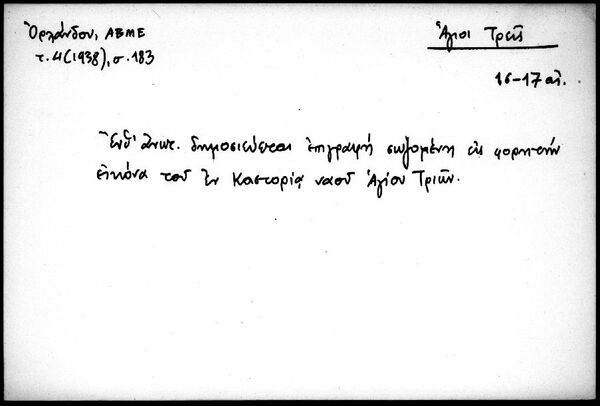 Ὀρλάνδου, ΑΒΜΕ
τ. 4 (1938), σ. 183
Ἅγιοι Τρεῖς
16-17 αἰ.
Ἔνθ' ἀνωτ. δημοσιεύεται ἐπιγραφή σωζομένη εἰς φορητήν
εἰκόνα τοῦ ἐν Καστορίᾳ ναοῦ Ἁγίου Τριῶν.